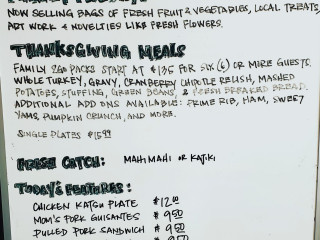 NOW SELLING BAGS OF FRESH FRUIT & VEGETABLES, LOCAL TREATS,
ART WORK & NOVELTIES LIKE FRESH FLOWERS.
THANKSGIVING MEALS
FAMILY 2GO PACKS START AT $135 FOR SIX (6) OR MORE GUESTS.
WHOLE TURKEY, GRAVY, CRANBERRY CHIPOTLE RELISH, MASHED
POTATOES, STUFFING, GREEN BEANS, & FRESH BREAKED BREAD.
ADDITIONAL ADD ONS AVAILABLE: PRIME RIB, HAM, SWEET
YAMS, PUMPKIN CRUNCH, AND MORE.
SINGLE PLATES $15.99
FRESH CATCH: MAHIMAHI OR KAJIKI
TODAY'S FEATURES:
CHICKEN KATSU PLATE $12.00
MOM'S PORK GUISANTES $9.50
PULLED PORK SANDWICH $9.50